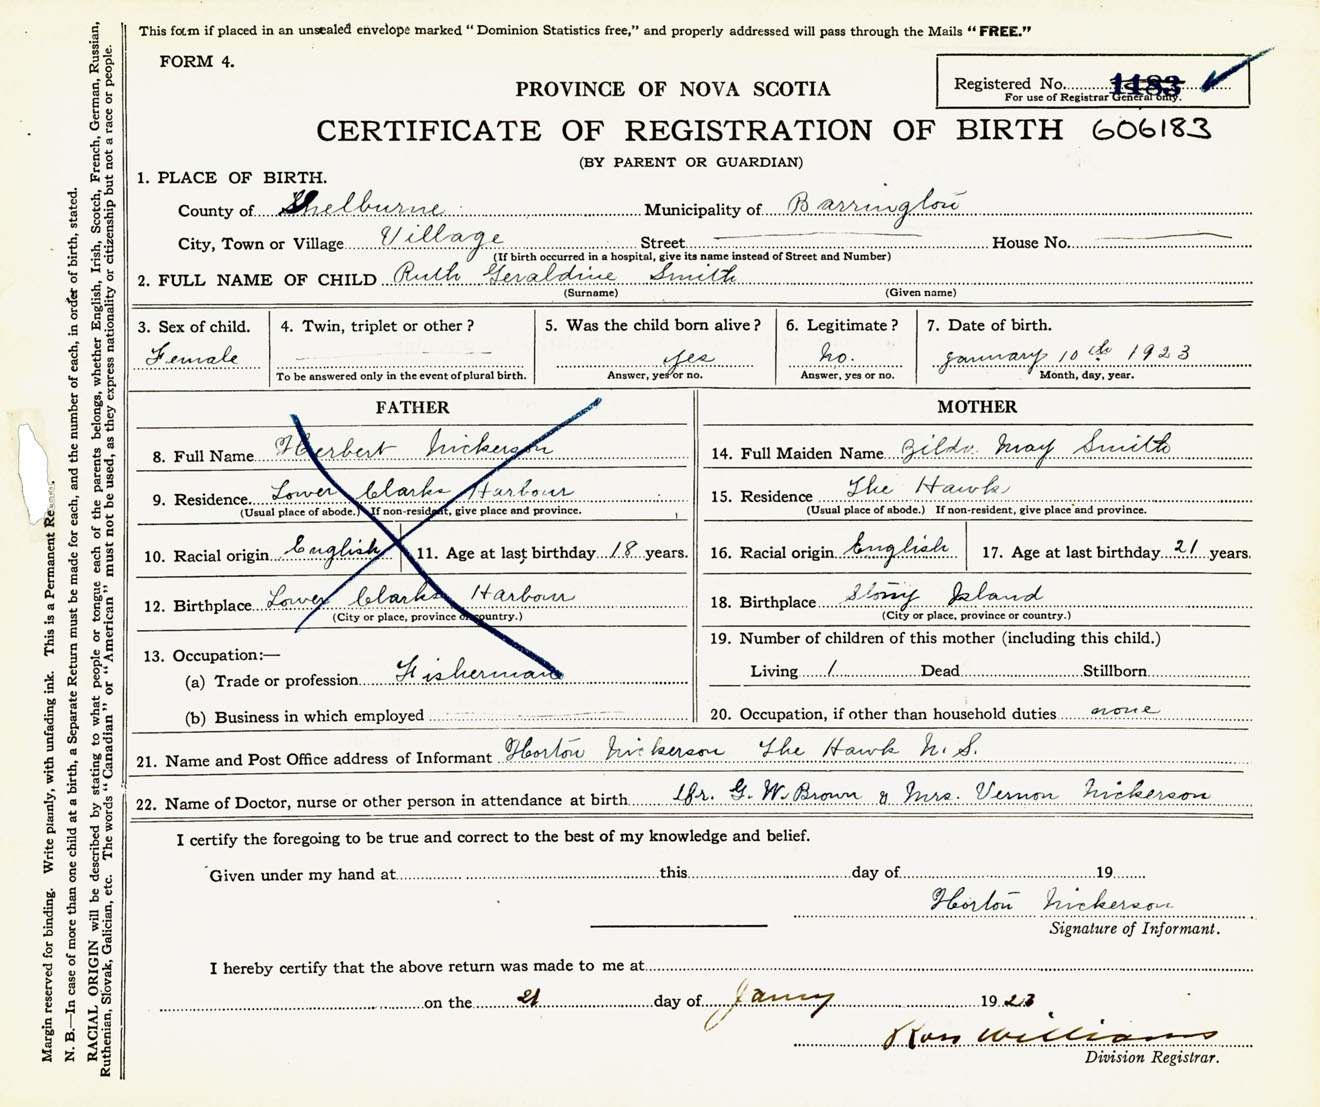 This form if placed in an unsealed envelope marked "Dominion Statistics free," and properly addressed will pass through the Mails "FREE."
FORM 4.
Registered No. 1183
For use of Registrar General only.
PROVINCE OF NOVA SCOTIA
CERTIFICATE OF REGISTRATION OF BIRTH 606183
(BY PARENT OR GUARDIAN)
1. PLACE OF BIRTH.
County of Shelburne Municipality of Barrington
City, Town or Village Village Street House No.
(If birth occurred in a hospital, give its name instead of Street and Number)
2. FULL NAME OF CHILD Ruth Geraldine Smith
(Surname) (Given name)
3. Sex of child. 4. Twin, triplet or other? 5. Was the child born alive? 6. Legitimate? 7. Date of birth.
Female yes no. January 10th 1923
To be answered only in the event of plural birth. Answer, yes or no. Answer, yes or no. Month, day, year.
FATHER
8. Full Name Herbert Nickerson
9. Residence Lower Clarks Harbour
(Usual place of abode.) If non-resident, give place and province.
10. Racial origin English 11. Age at last birthday 18 years.
12. Birthplace Lower Clarks Harbour
(City or place, province or country.)
13. Occupation:—
(a) Trade or profession Fisherman
(b) Business in which employed
MOTHER
14. Full Maiden Name Zilda May Smith
15. Residence The Hawk
(Usual place of abode.) If non-resident, give place and province.
16. Racial origin English 17. Age at last birthday 21 years.
18. Birthplace Stony Island
(City or place, province or country.)
19. Number of children of this mother (including this child.)
Living 1 Dead Stillborn
20. Occupation, if other than household duties none
21. Name and Post Office address of Informant Horton Nickerson The Hawk N. S.
22. Name of Doctor, nurse or other person in attendance at birth Dr. G. W. Brown & Mrs. Vernon Nickerson
I certify the foregoing to be true and correct to the best of my knowledge and belief.
Given under my hand at this day of 19
Horton Nickerson
Signature of Informant.
I hereby certify that the above return was made to me at
on the 21 day of Jany 1923
Williams
Division Registrar.
Margin reserved for binding. Write plainly, with unfading ink. This is a Permanent
N. B.—In case of more than one child at a birth, a Separate Return must be made for each, and the number of each, in order of birth, stated.
RACIAL ORIGIN will be described by stating to what people or tongue each of the parents belongs, whether English, Irish, Scotch, French, German, Russian,
Ruthenian, Slovak, Galician, etc. The words "Canadian" or "American" must not be used, as they express nationality or citizenship but not a race or people.